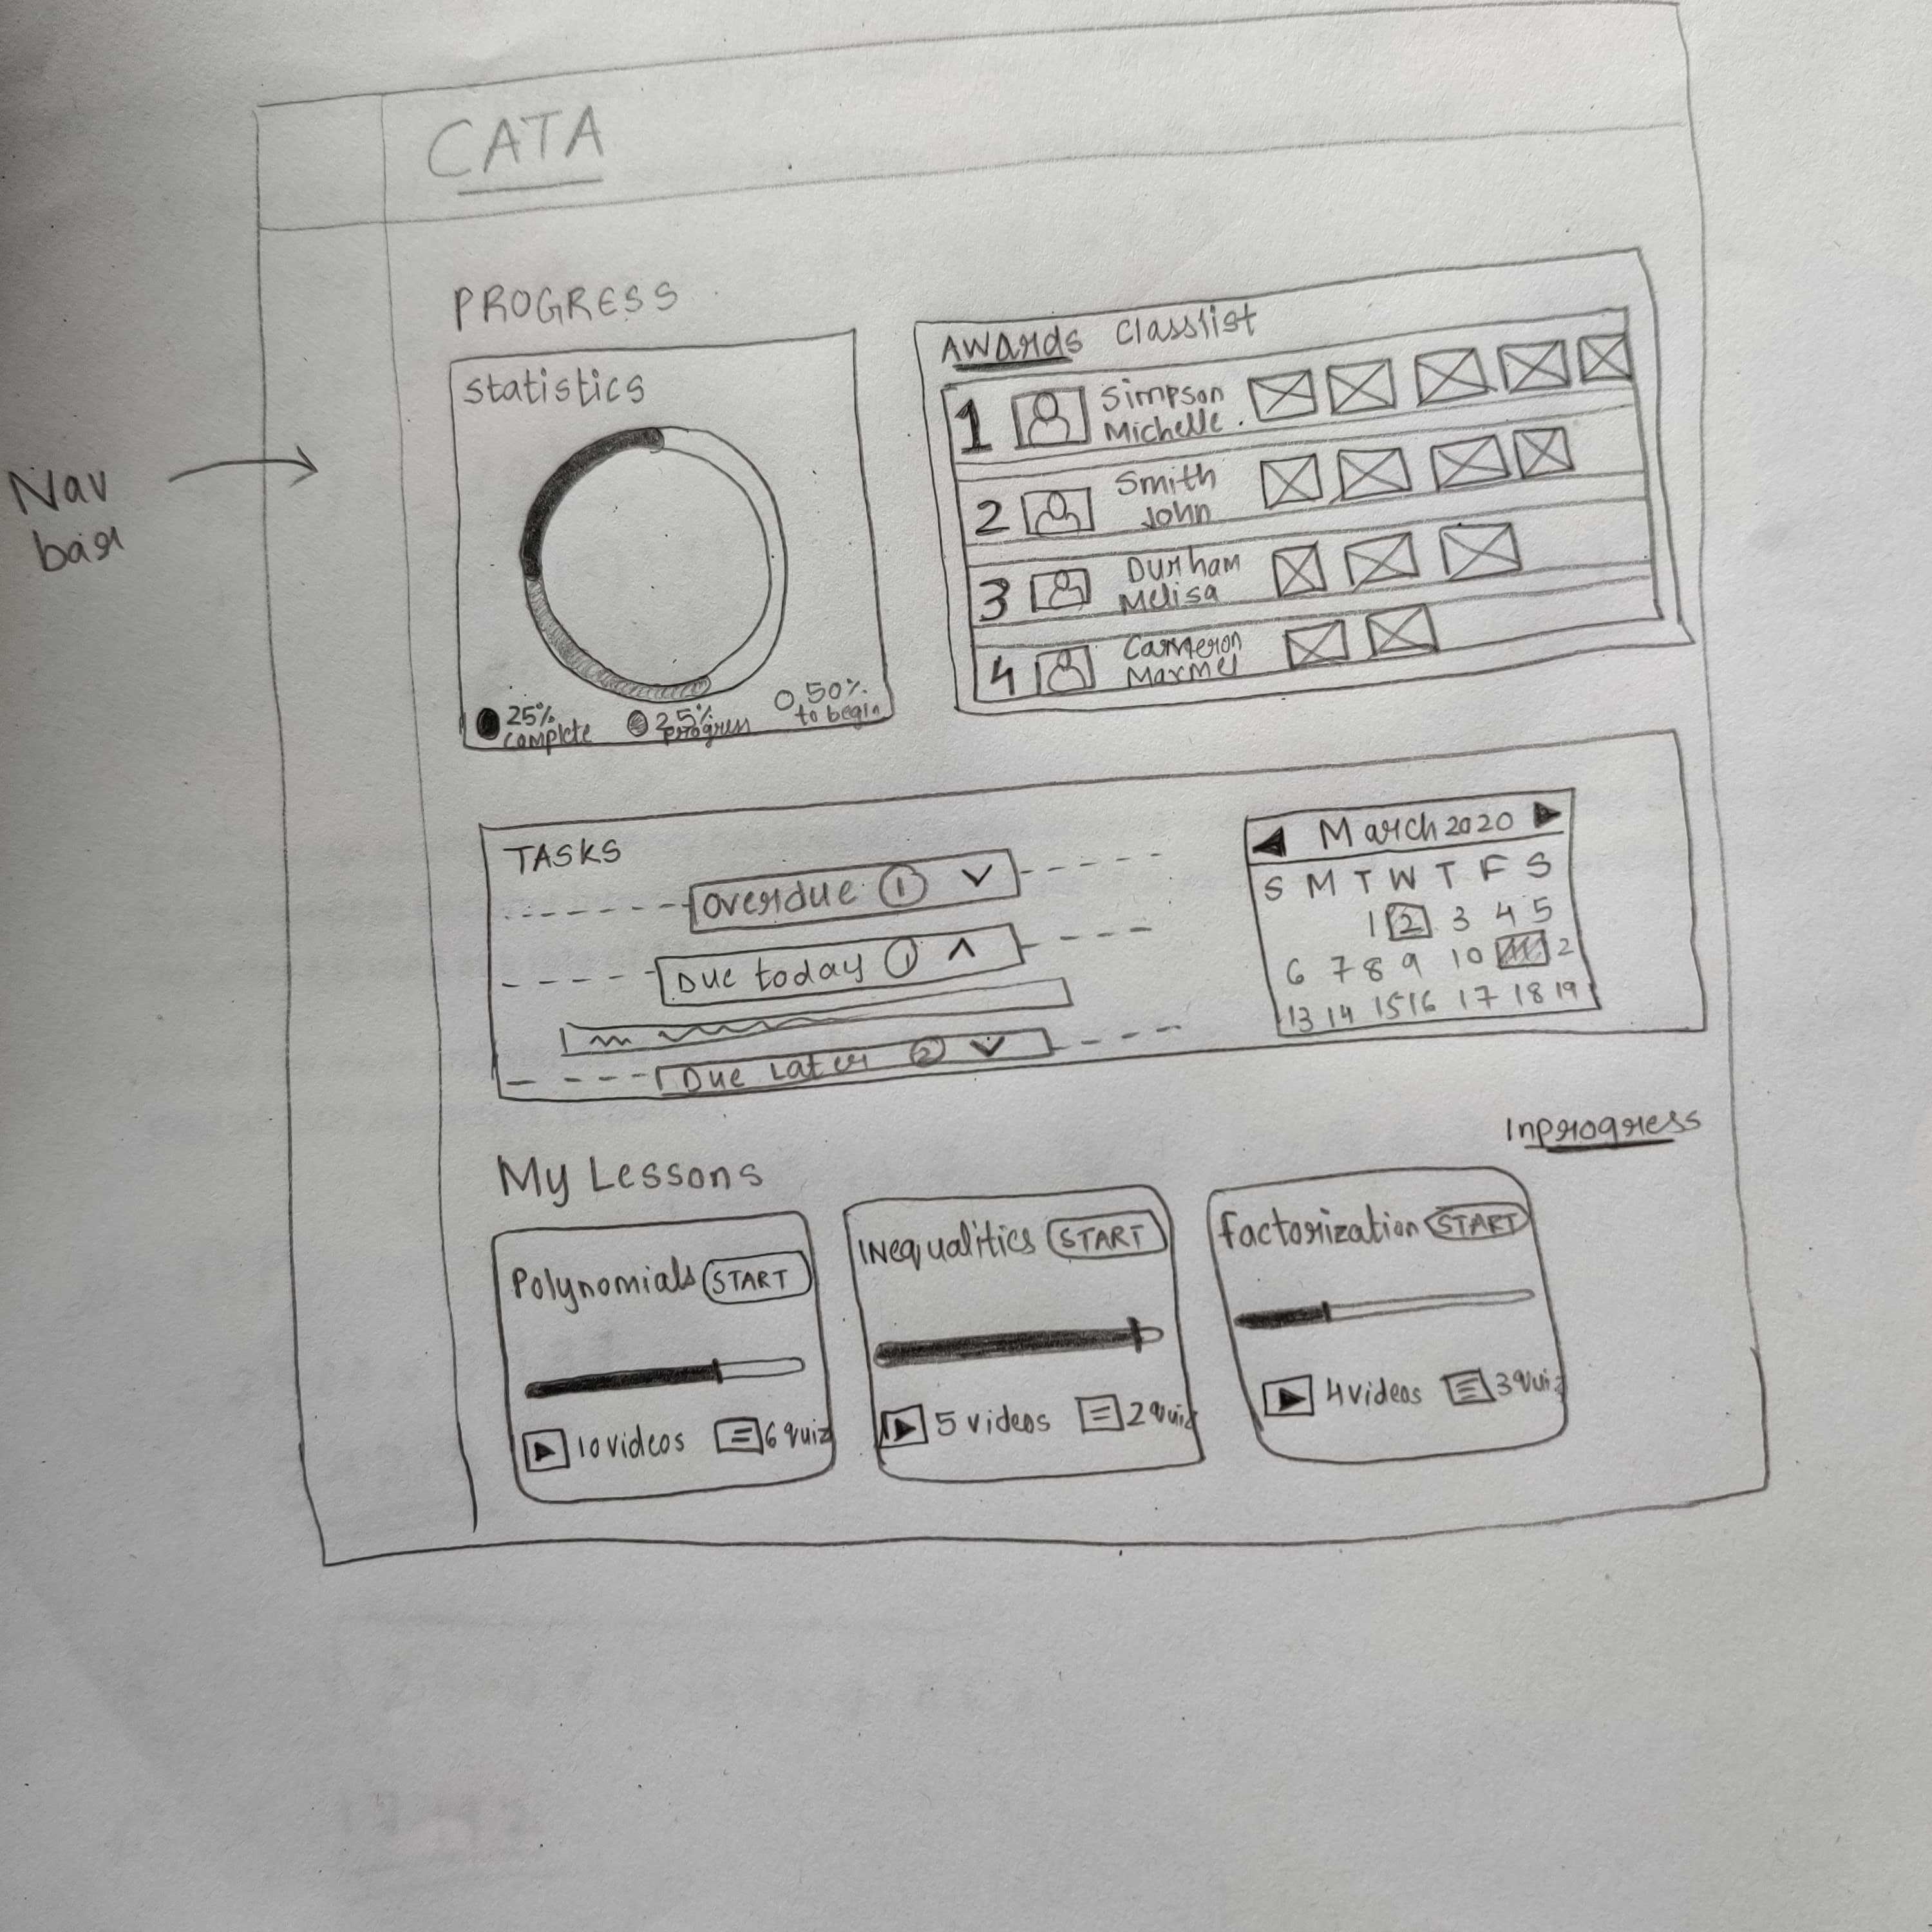 CATA
Nav
bar
PROGRESS
Statistics
25%
complete
25%
progress
50%
to begin
Awards Classlist
1 Simpson
Michelle.
2 Smith
John
3 Durham
Melisa
4 Cameron
TASKS
Overdue 1
Due today 1
Due Later 2
March 2020
S M T W T F S
1 2 3 4 5
6 7 8 9 10 11 2
13 14 15 16 17 18 19
My Lessons
Inprogress
Polynomials START
10 videos 6 quiz
Inequalities START
5 videos 2 quiz
factorization START
4 videos 3 quiz